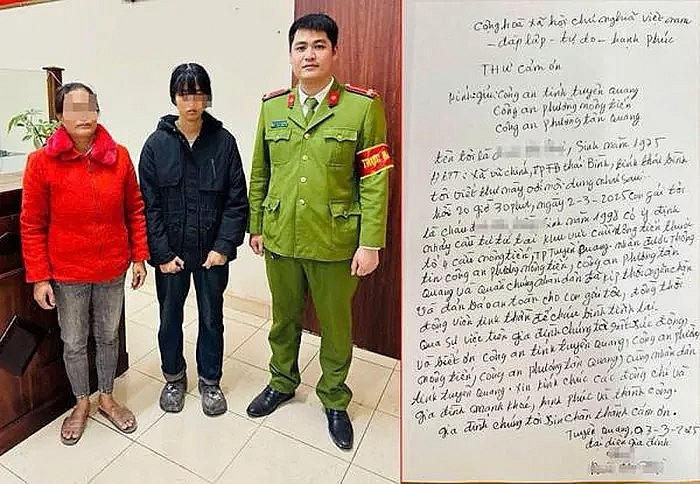 TRỰC BAN
Cộng hoà xã hội chủ nghĩa Việt nam
- độc lập - tự do - hạnh phúc
THƯ CẢM ƠN
Kính gửi: Công an tỉnh tuyên Quang
Công an phường nông tiến
Công an phường tân quang
tên tôi là , Sinh năm 1975
HKTT: xã vũ chính, TPTB thái Bình, tỉnh thái bình
tôi viết thư này với nội dung như sau
hồi 20 giờ 30 phút, ngày 2-3-2025 con gái tôi
là cháu Sinh năm 1998 có ý định
nhảy cầu tự tử tại khu vực cầu nông tiến thuộc
tổ 4 cầu nông tiến, TP Tuyên Quang. nhận được thông
tin công an phường nông tiến, công an phường tân
Quang và quần chúng nhân dân đã kịp thời ngăn chặn
và đảm bảo an toàn cho con gái tôi, đồng thời
động viên tinh thần để cháu bình tĩnh lại
Qua sự việc trên gia đình chúng tôi rất xúc động
và biết ơn công an tỉnh tuyên Quang, công an phường
nông tiến, công an phường tân Quang, cùng nhân dân
tỉnh tuyên Quang. Xin kính chúc các đồng chí và
gia đình mạnh khoẻ, hạnh phúc và thành công.
gia đình chúng tôi xin chân thành cảm ơn.
Tuyên Quang, 07-3-2025
đại diện gia đình